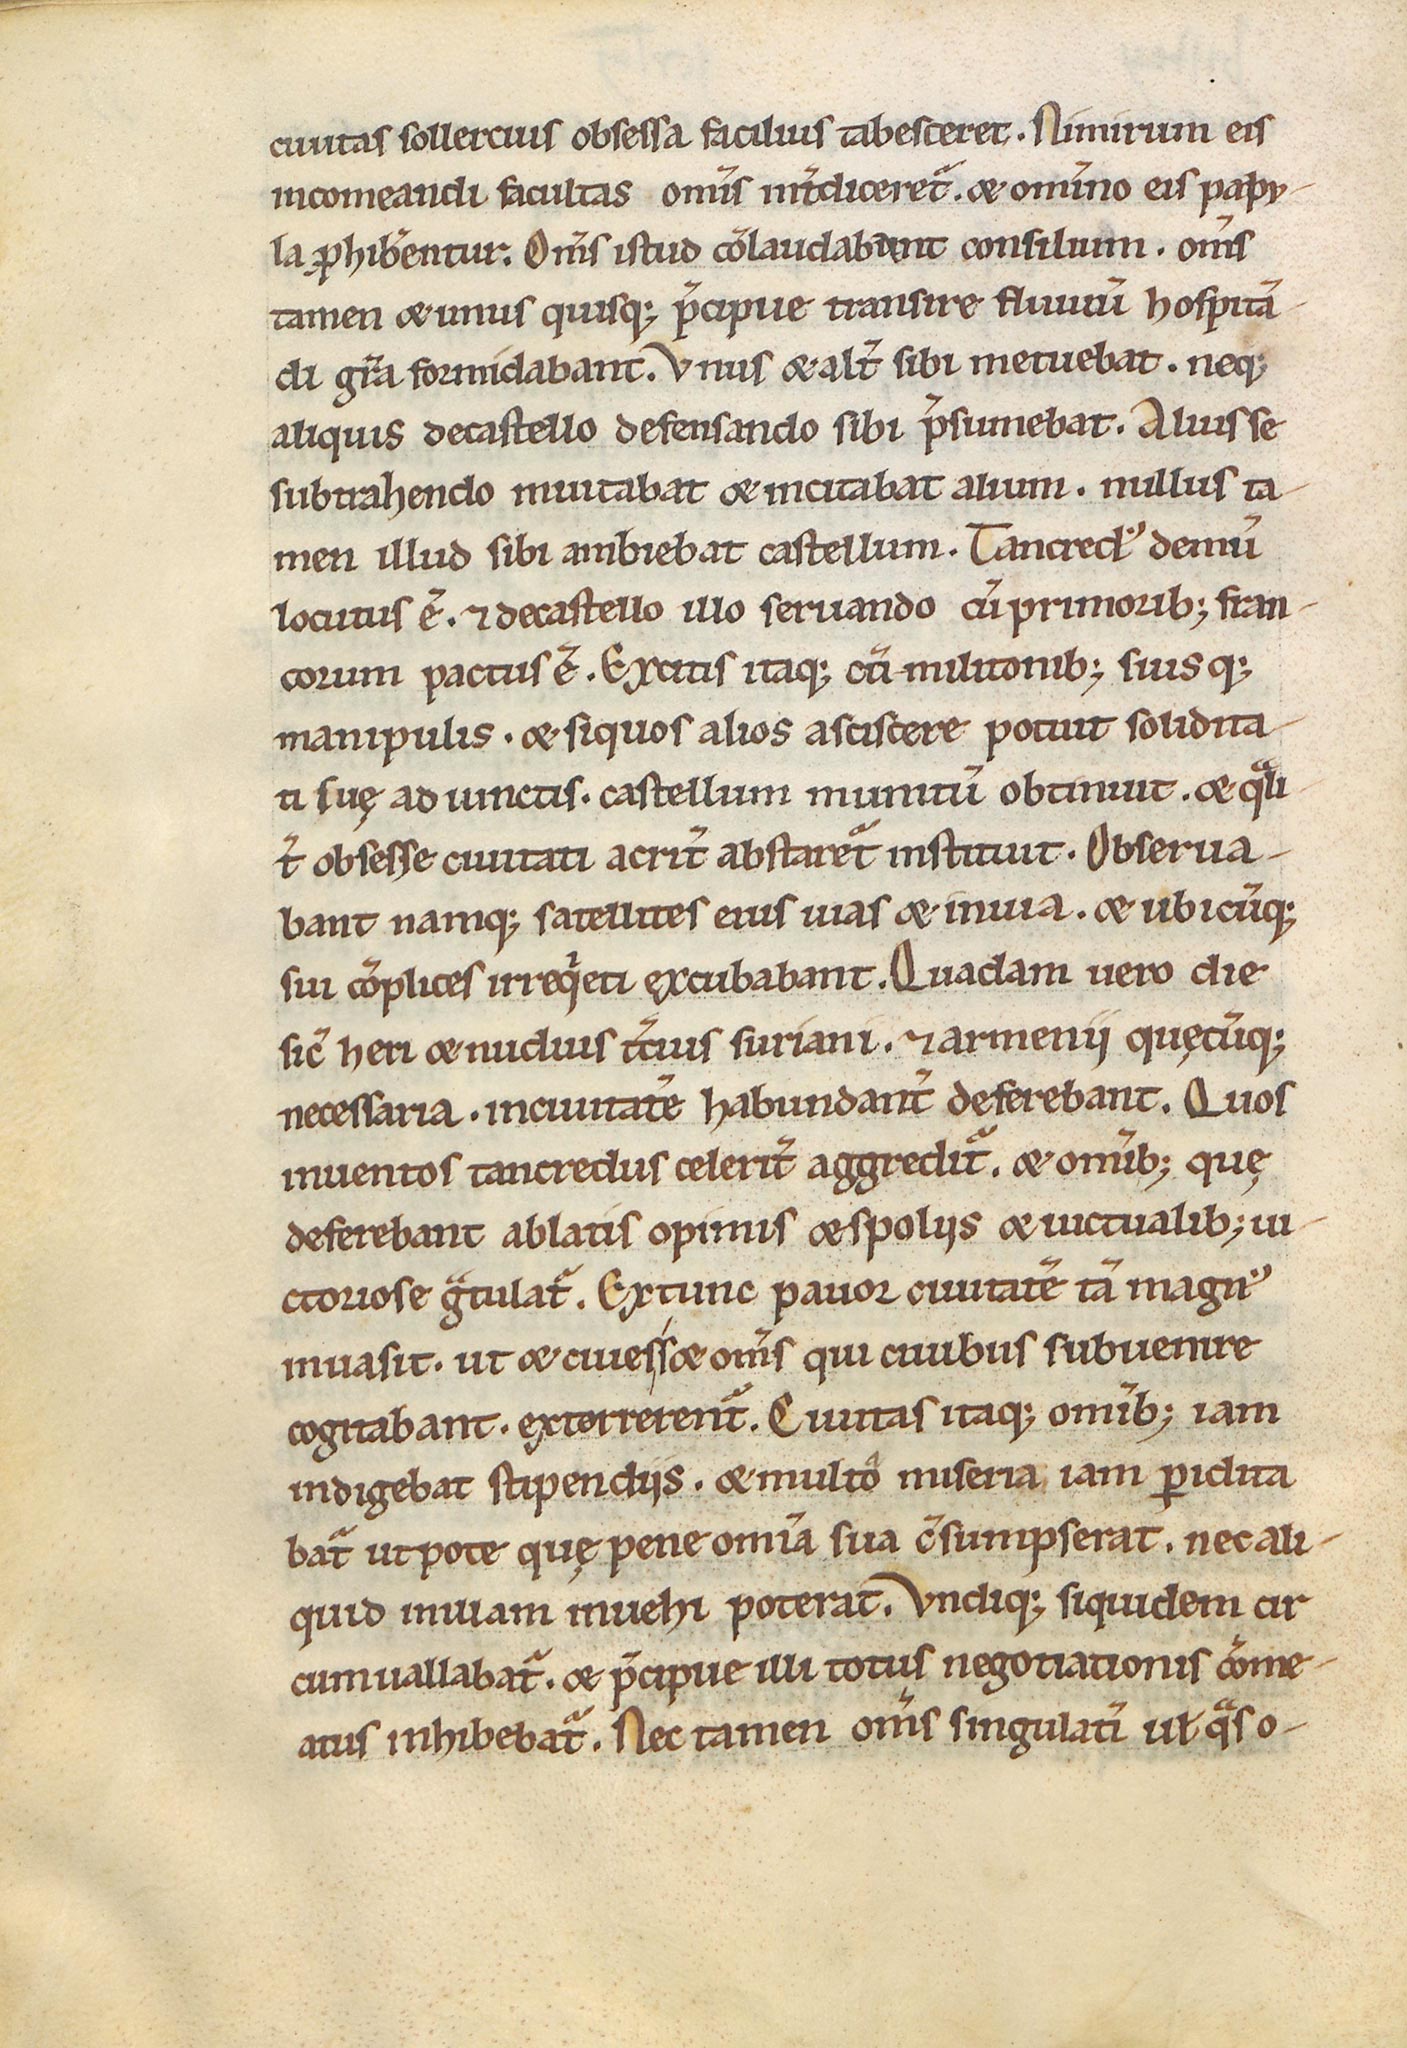 ciuitas sollercius obsessa facilius tabesceret. Nimirum eis
incomeandi facultas om̄s int̄diceret᷑. & om̄ino eis papy-
la ꝓhib̄entur. Om̄s istud cōlaudabunt consilium. om̄s
tamen & unus quisq; p̄cipue transire fluuiū hospitā-
di gr̄a formidabant. Vnus & alt̄ sibi metuebat. neq;
aliquis decastello defensando sibi p̄sumebat. Alius se
subtrahendo inuitabat & incitabat alium. nullus ta-
men illud sibi ambiebat castellum. Tancredꝰ demū
locutus ē. ⁊ decastello illo seruando cū primorib; fran-
corum pactus ē. Excitis itaq; cū militonib; suisq;
manipulis. & siquos alios asciscere potuit solidita-
ti suę ad iunctis. castellum munitū obtinuit. & qͣli
t̄ obsesse ciuitati acrit̄ abstaret᷑ instituit. Obserua-
bant namq; satellites eius uias & inuia. & ubicūq;
sui cōplices irreqͥeti excubabant. Quadam uero die
sic̄ heri & nudius t̄cius suriani. ⁊ armenij quęcūq;
necessaria. inciuitatē habundant̄ deferebant. Quos
inuentos tancredus celerit̄ aggredit᷑. & om̄ib; quę
deferebant ablatis opimis & spolijs & uictualib; ui-
ctoriose gͣtulat᷑. Extunc pauor ciuitatē tā magnꝰ
inuasit. ut & ciues & om̄s qui ciuibus subuenire
cogitabant. exterrerent᷑. Ciuitas itaq; om̄ib; iam
indigebat stipendijs. & multo miseria iam ꝑidita
bat᷑ utpote quę pene om̄ia sua c̄sumpserat. nec ali-
quid inuiam inuehi poterat. Vndiq; siquidem cir
cumuallabat᷑. & p̄cipue illi totus negotiationis cōme-
atus inhibebat᷑. Nec tamen om̄s singulati᷑ ul̄ qͣs o-